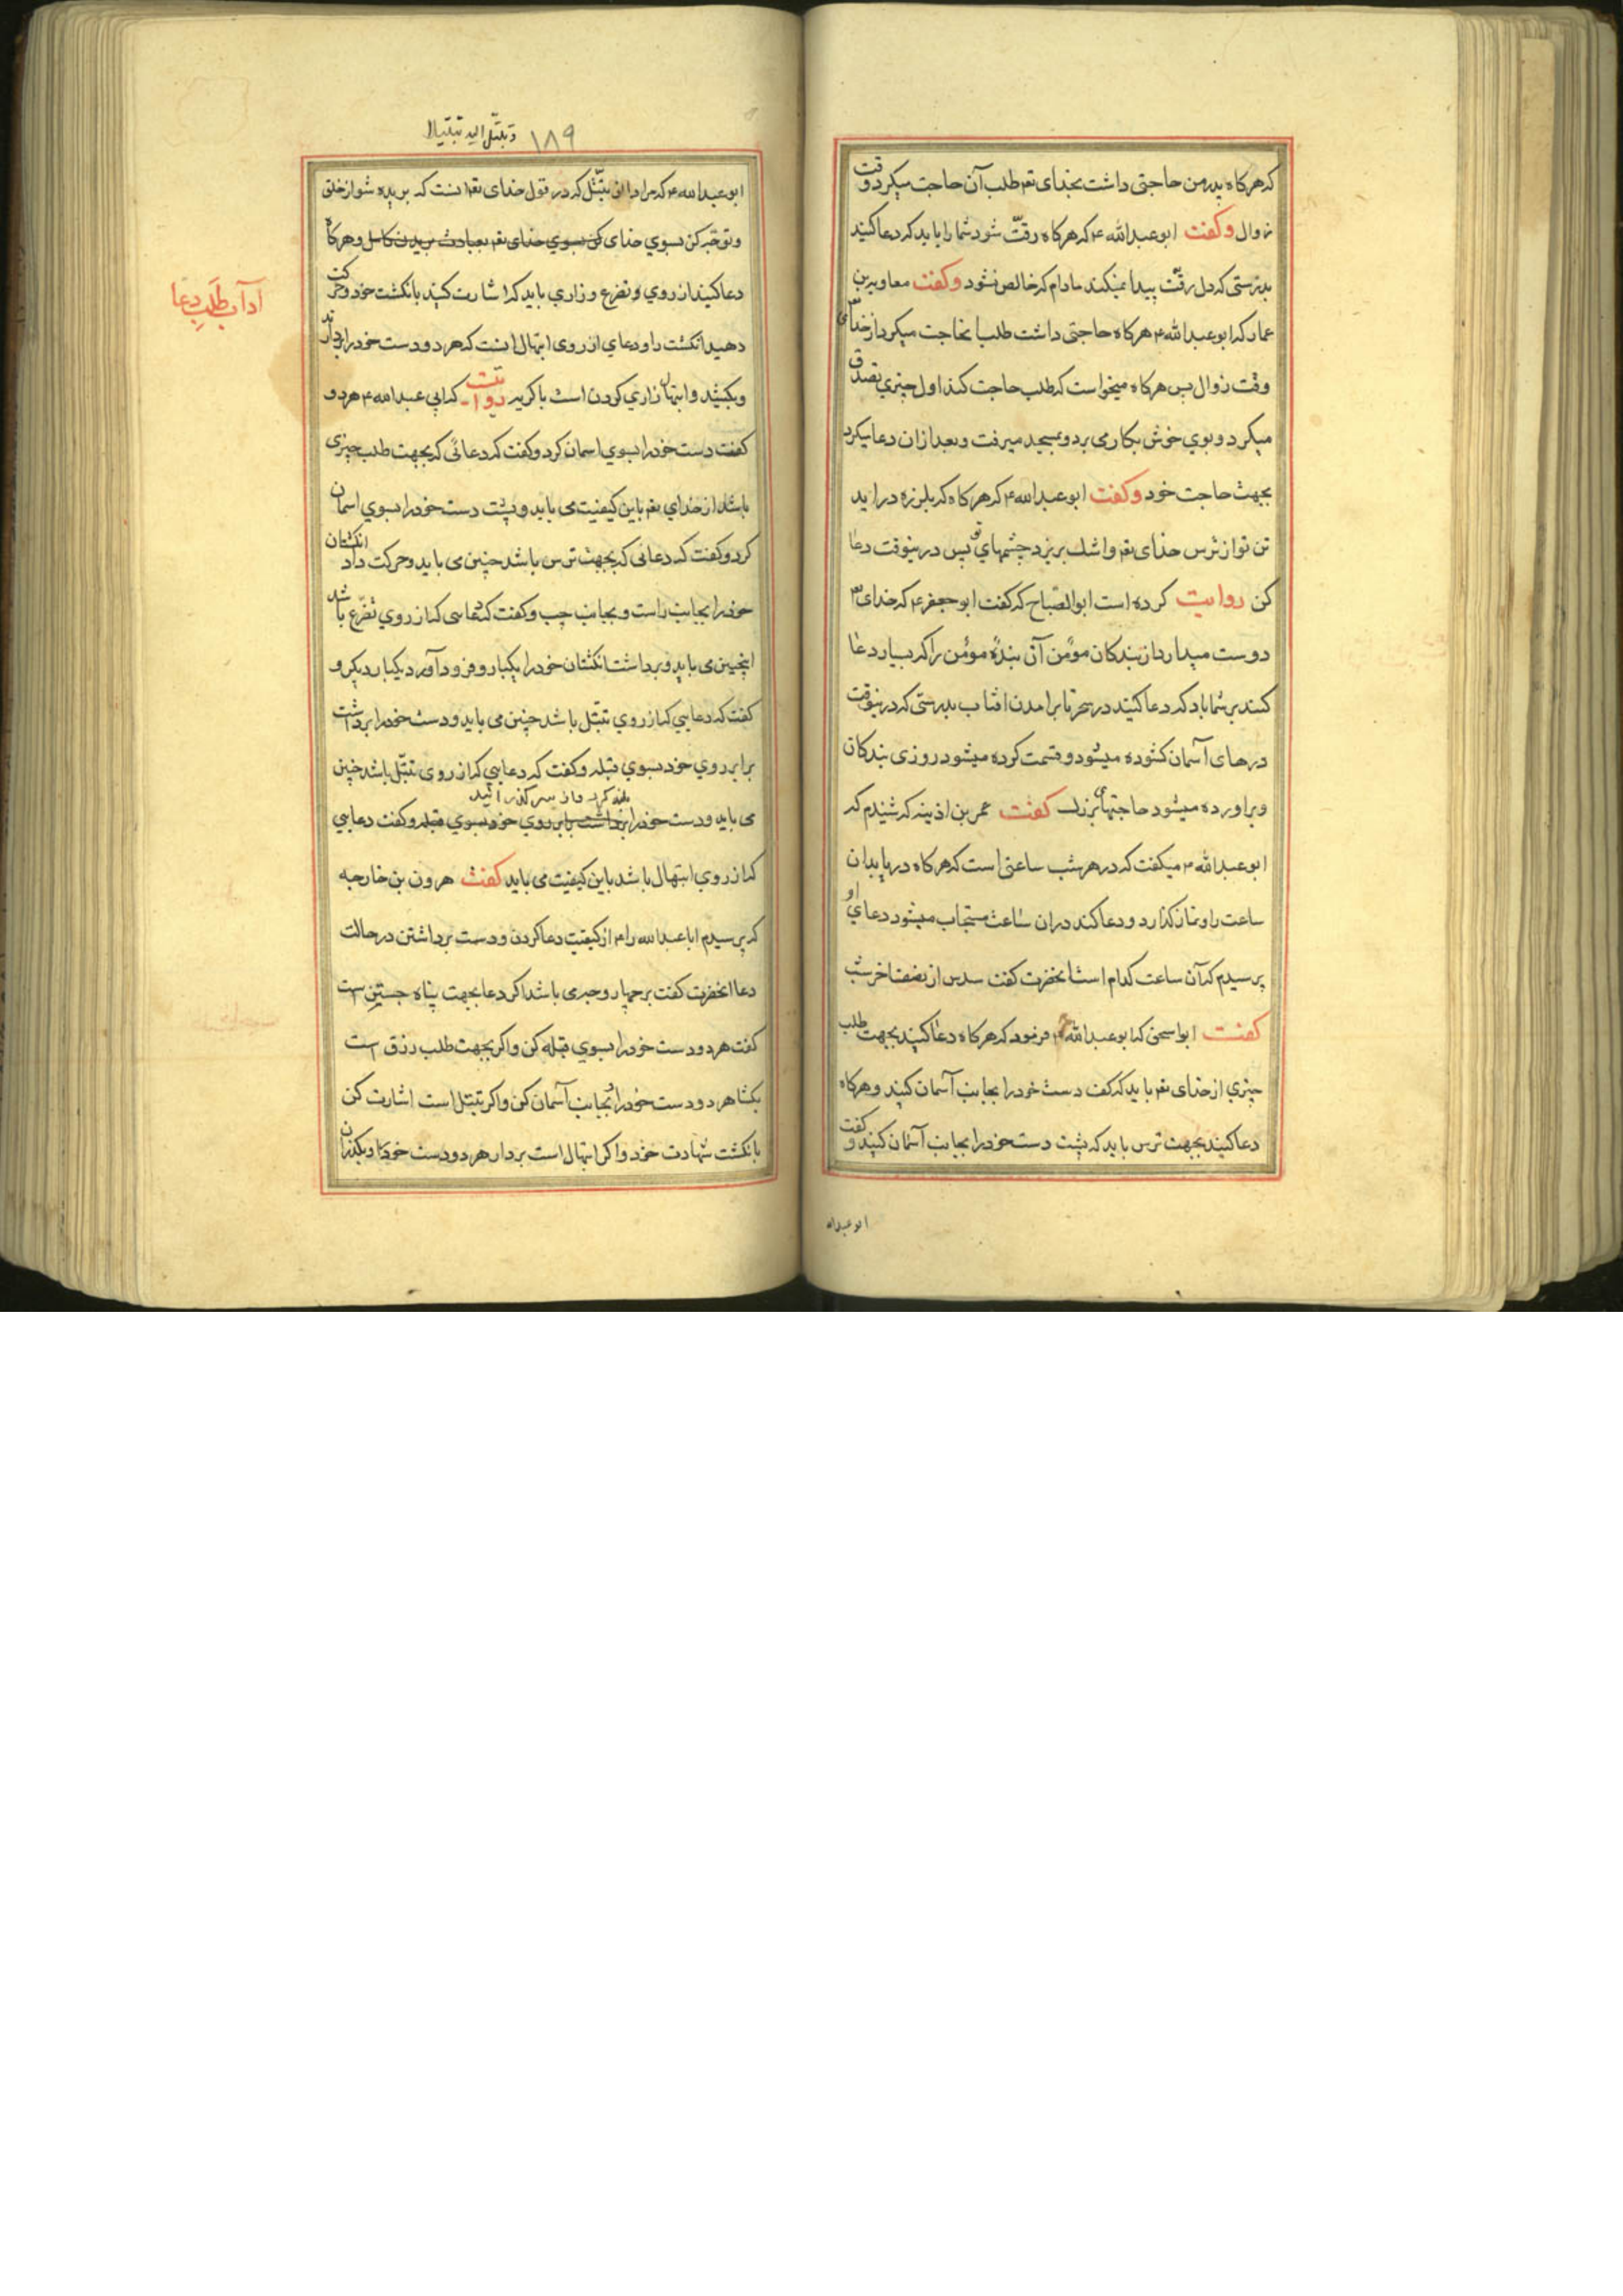 که هرکاه پدر من حاجتی داشت بخدای تعم طلب آن حاجت میکرد وقت
زوال وکفت ابو عبدالله ۴ که هرکاه رقّت شود شما را باید که دعا کنید
بدرستی که دل رقّت پیدا نمیکند مادام که خالص نشود وکفت معاویه بن
عمار که ابو عبدالله ۴ هرکاه حاجتی داشت طلب انحاجت میکرد از خدای
وقت زوال پس هرکاه میخواست که طلب حاجت کند اول چیزی تصدق
میکرد و بوی خوش بکار می برد و بمسجد میرفت و بعد از ان دعا میکرد
بجهت حاجت خود وکفت ابو عبدالله ۴ که هرکاه که بلرزه در اید
تن تو از ترس خدای تعم و اشک بریزد چشمهای تو پس درینوقت دعا
کن روایت کرده است ابو الصّباح که کفت ابو جعفر ۴ که خدای تعم
دوست میدارد از بندکان مؤمن آن بندهٔ مؤمن را که بسیار دعا
کنند بر شما باد که دعا کنید در سحر تا برامدن افتاب بدرستی که درینوقت
درهای آسمان کشوده میشود و قسمت کرده میشود روزی بندکان
و براورده میشود حاجتهای بزرک کفت عمر بن اذینه که شنیدم که
ابو عبدالله ۴ میکفت که در هر شب ساعتی است که هرکاه دریابد ان
ساعت را و نماز کذارد و دعا کند دران ساعت مستجاب میشود دعای او
پرسیدم که آن ساعت کدام است انحضرت کفت سدس از نصف اخر شب
کفت ابو اسحق که ابو عبدالله ۴ فرمود که هرکاه دعا کنید بجهت طلب
چیزی از خدای تعم باید که کف دست خود را بجانب آسمان کنید و هرکاه
دعا کنید بجهت ترس باید که پشت دست خود را بجانب آسمان کنید و کفت
ابو عبدالله
۱۸۹ وتبتّل الیه تبتیلا
ابو عبدالله ۴ که مراد از تبتّل که در قول خدای تعم انست که بریده شو از خلق
و توجّه کن بسوی خدای کن بسوی خدای تعم بعبادت بریدن کامل و هرکاه
آداب طلب دعا
دعا کنید از روی و تضرع و زاری باید که اشارت کنید بانکشت خود و حرکت
دهید انکشت را و دعای از روی ابتهال انست که هر دو دست خود را بردارید
و بکشید و ابتهال زاری کردن است با کریه روایت که ابی عبدالله ۴ هر دو
کفت دست خود را بسوی اسمان کرد و کفت که دعائی که بجهت طلب چیزی
باشد از خدای تعم باین کیفیت می باید و پشت دست خود را بسوی اسمان
کرد و کفت که دعائی که بجهت ترس باشد چنین می باید و حرکت داد انکشتان
خود را بجانب راست و بجانب چپ و کفت که دعایی که از روی تضرّع باشد
اینچنین می باید و برداشت انکشتان خود را یکبار و فرود آورد یکبار دیکر و
کفت که دعایی که از روی تبتّل باشد چنین می باید و دست خود را برداشت
برابر روی خود بسوی قبله و کفت که دعایی که از روی تبتّل باشد چنین
بلند کرد و از سر کذرانید
می باید و دست خود را برداشت برابر روی خود بسوی قبله و کفت دعایی
که از روی ابتهال باشد باین کیفیت می باید کفت هرون بن خارجه
که پرسیدم ابا عبدالله را ۴ از کیفیت دعا کردن و دست برداشتن در حالت
دعا انحضرت کفت بر چهار وجهی باشد اکر دعا بجهت پناه جستن است
کفت هر دو دست خود را بسوی قبله کن و اکر بجهت طلب رزق است
بکشا هر دو دست خود را بجانب آسمان کن و اکر تبتل است اشارت کن
بانکشت شهادت خود و اکر ابتهال است بردار هر دو دست خود را و بکذران